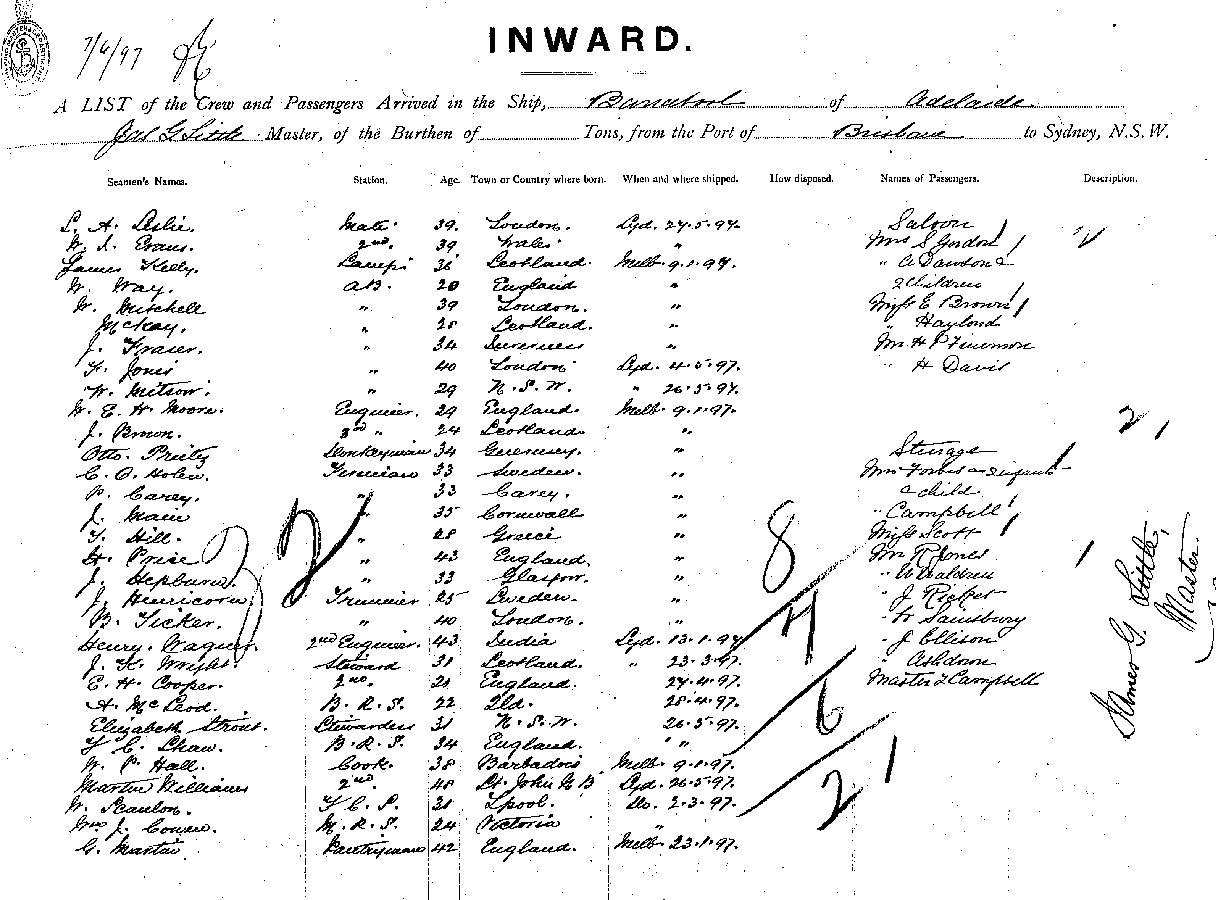 7/6/97
INWARD.
A LIST of the Crew and Passengers Arrived in the Ship, Barrabool of Adelaide
Jas G Little Master, of the Burthen of Tons, from the Port of Brisbane to Sydney, N.S.W.
Seamen's Names. Station. Age. Town or Country where born. When and where shipped. How disposed. Names of Passengers. Description.
L. A. Leslie. Mate 39. London. Syd. 27.5.97. Saloon
W. I. Evans. 2nd 39 Wales " Mrs S Gordon
James Kelly. Lamps 36 Scotland. Melb. 9.1.97. " A Dawson &
W. Way. A.B. 20 England " 2 Children
W. Mitchell " 39 London. " Miss E Brown
McKay. " 28 Scotland. " " Haylond
J. Fraser. " 34 Inverness " Mr H P Finemson
H. Jones " 40 London Syd. 4.5.97. " H Davis
W. Mitson. " 29 N.S.W. " 26.5.97.
W. E. H. Moore. Engineer. 29 England. Melb. 9.1.97. 2 1
J. Brown. 3rd " 24 Scotland. "
Otto Donkeyman 34 Guernsey. " Steerage
C. O. Holm. Fireman 33 Sweden. " Mrs Forbes & infant
P. Carey. " 33 Carey. " & child
J. Main " 35 Cornwall " " Campbell
T. Hill. " 28 Greece " Miss Scott
H. Price " 43 England. " Mr R Jones
J. Hepburn " 33 Glasgow. " " W Waldren
J. Henricorn Trimmer 25 Sweden. " " J
B. Ticker. " 40 London. " " W Sainsbury
Henry. Wagner 2nd Engineer. 43 India Syd. 13.1.97 " J Ellison
J. K. Wright. Steward 31 Scotland. " 23.3.97. " Ashdown
E. H. Cooper. 2nd. 21 England. 27.4.97. Master J Campbell
A. McLeod. B.R.S. 22 Qld. 28.4.97.
Elizabeth Strout. Stewardess 31 N.S.W. 26.5.97.
F C. Shaw. B.R.S. 34 England. " "
W. P. Hall. Cook. 38 Barbados Melb. 9.1.97.
Martin Williams 2nd 48 St. John N B Syd. 26.5.97.
W. Scanlon. F.C.S. 31 L'pool. Do. 2.3.97.
Wm J. Cowan. M.R.S. 24 Victoria "
G. Martin Pantryman 42 England. Melb. 23.1.97.
32
8
4
6
21
James G. Little,
Master.